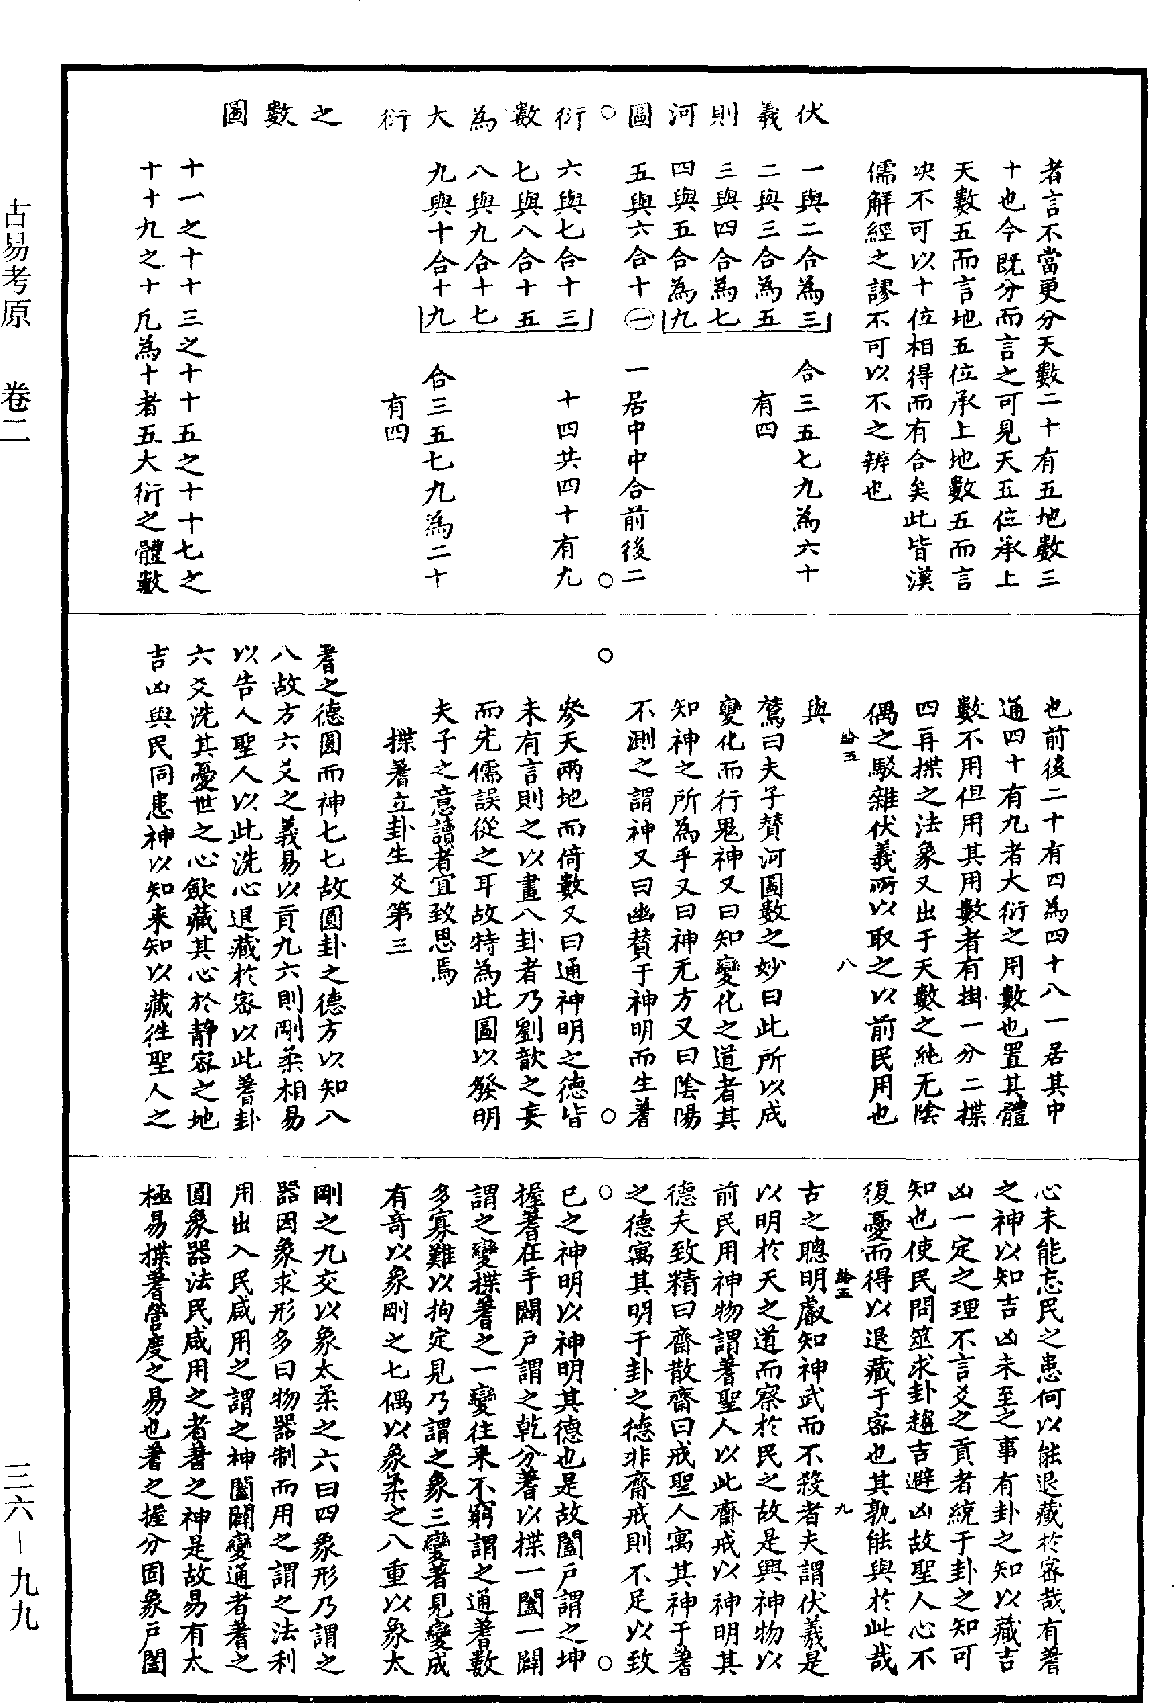 者言不當更分天數二十有五地數三
十也今既分而言之可見天五位承上
天數五而言地五位承上地數五而言
决不可以十位相得而有合矣此皆漢
儒解經之謬不可以不之辨也
伏羲則河圖○衍數為大衍之數圖
一與二合為三
二與三合為五
三與四合為七
四與五合為九
合三五七九為六十
有四
五與六合十㊀
一居中中合前後二○
六與七合十三
七與八合十五
八與九合十七
九與十合十九
十四共四十有九
合三五七九為二十
有四
十一之十十三之十十五之十十七之
十十九之十凡為十者五大衍之體數
也前後二十有四為四十八一居其中
通四十有九者大衍之用數也置其體
數不用但用其用數者有掛一分二揲
四再揲之法象又出于天數之純无陰
偶之駁雜伏羲所以取之以前民用也
與
八
鶩曰夫子贊河圖數之妙曰此所以成
變化而行鬼神又曰知變化之道者其
知神之所為乎又曰神无方又曰陰陽
不測之謂神又曰幽贊于神明而生蓍
○○
參天兩地而倚數又曰通神明之德皆
未有言則之以畫八卦者乃劉歆之妄
而先儒誤從之耳故特為此圖以發明
夫子之意讀者宜致思焉
揲蓍立卦生爻第三
蓍之德圓而神七七故圓卦之德方以知八
八故方六爻之義易以貢九六則剛柔相易
以告人聖人以此洗心退藏於密以此蓍卦
六爻洗其憂世之心歛藏其心於靜密之地
吉凶與民同患神以知来知以藏徃聖人之
心未能忘民之患何以能退藏於密哉有蓍
之神以知吉凶未至之事有卦之知以藏吉
凶一定之理不言爻之貢者統于卦之知可
知也使民問筮求卦趨吉避凶故聖人心不
復憂而得以退藏于密也其孰能與於此哉
九
古之聰明叡知神武而不殺者夫謂伏羲是
以明於天之道而察於民之故是興神物以
前民用神物謂蓍聖人以此齋戒以神明其
德夫致精曰齋散齋曰戒聖人寓其神于蓍
之德寓其明于卦之德非齋戒則不足以致
○○
已之神明以神明其德也是故闔戸謂之坤
握蓍在手闢戸謂之乾分蓍以揲一闔一闢
謂之變揲蓍之一變往来不窮謂之通蓍數
多寡難以拘定見乃謂之象三變著見變成
有竒以象剛之七偶以象柔之八重以象太
剛之九交以象太柔之六曰四象形乃謂之
器因象求形多曰物器制而用之謂之法利
用出入民咸用之謂之神闔闢變通者蓍之
圓象器法民咸用之者蓍之神是故易有太
極易揲蓍營度之易也蓍之握分固象戸闔
古易考原　卷二
三六－九九